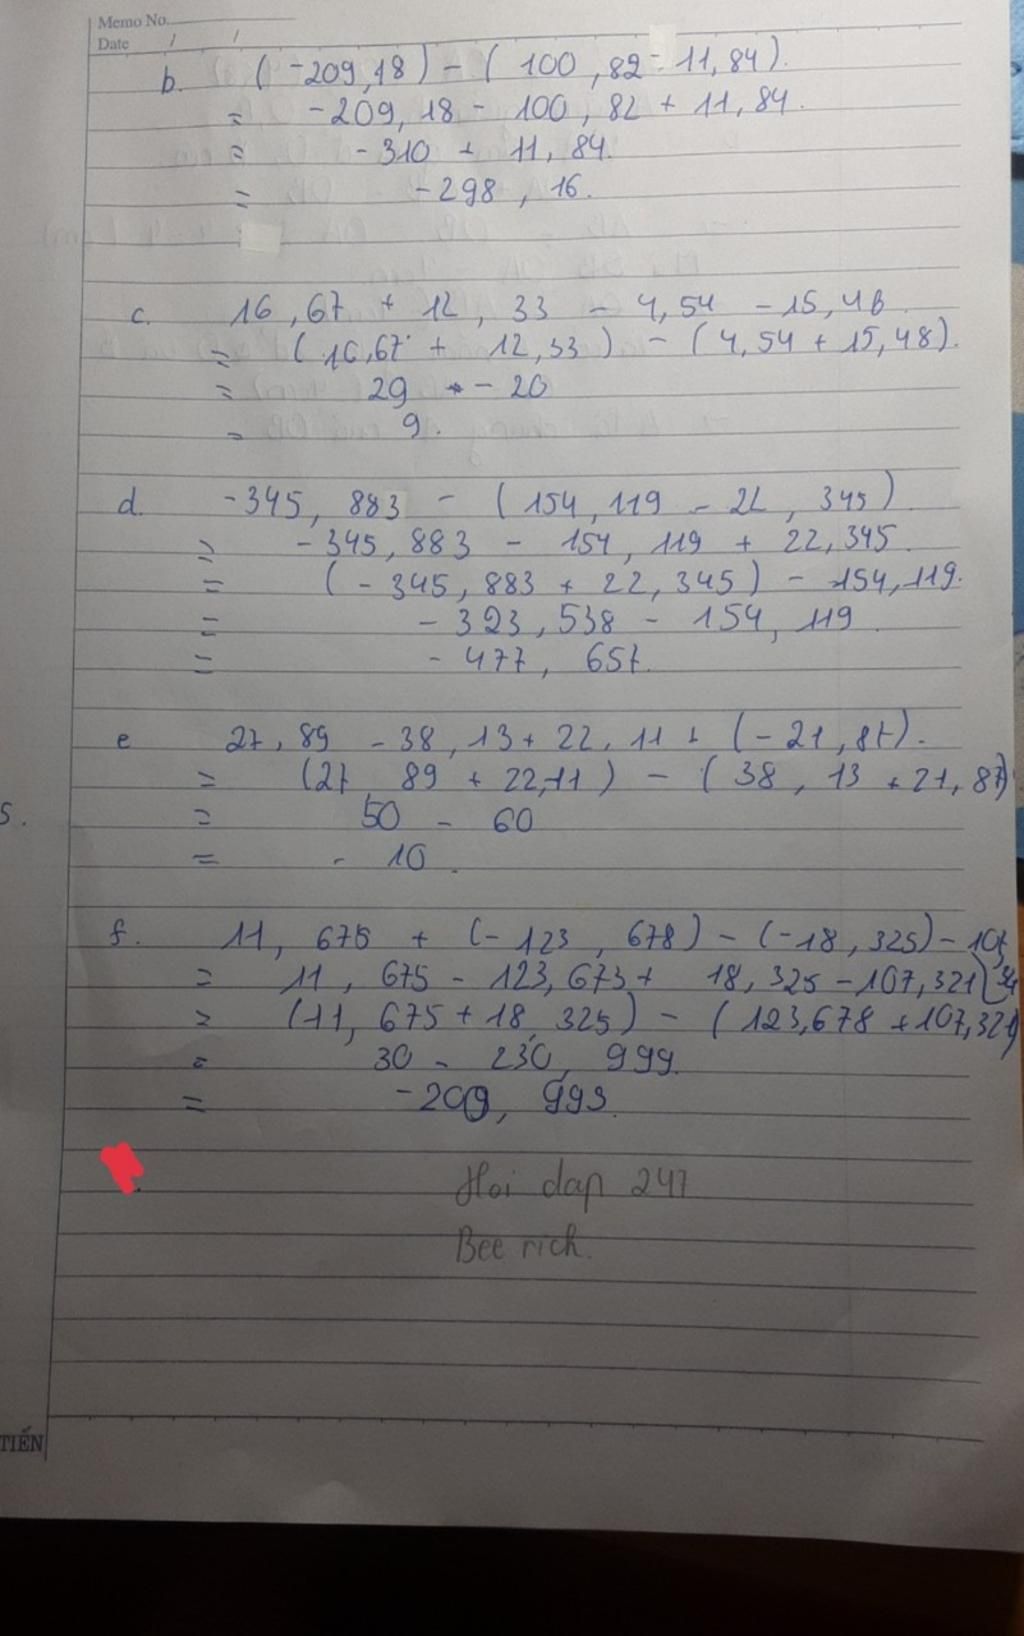 Memo No.
Date / /
b. (-209,18) - (100,82 - 11,84).
= -209,18 - 100,82 + 11,84.
= -310 + 11,84.
= -298,16.
c. 16,67 + 12,33 - 4,54 - 15,48
= (16,67 + 12,33) - (4,54 + 15,48).
= 29 - 20
= 9.
d. -345,883 - (154,119 - 22,345)
= -345,883 - 154,119 + 22,345.
= (-345,883 + 22,345) - 154,119.
= -323,538 - 154,119
= -477,657.
e 27,89 - 38,13 + 22,11 + (-21,87).
= (27 89 + 22,11) - (38,13 + 21,87)
S.
= 50 - 60
= -10.
f. 11,675 + (-123,678) - (-18,325) - 107,
= 11,675 - 123,673 + 18,325 - 107,321
= (11,675 + 18,325) - (123,678 + 107,321)
= 30 - 230,999.
= -209,993.
Hoi dap 247
Bee rich.
TIẾN